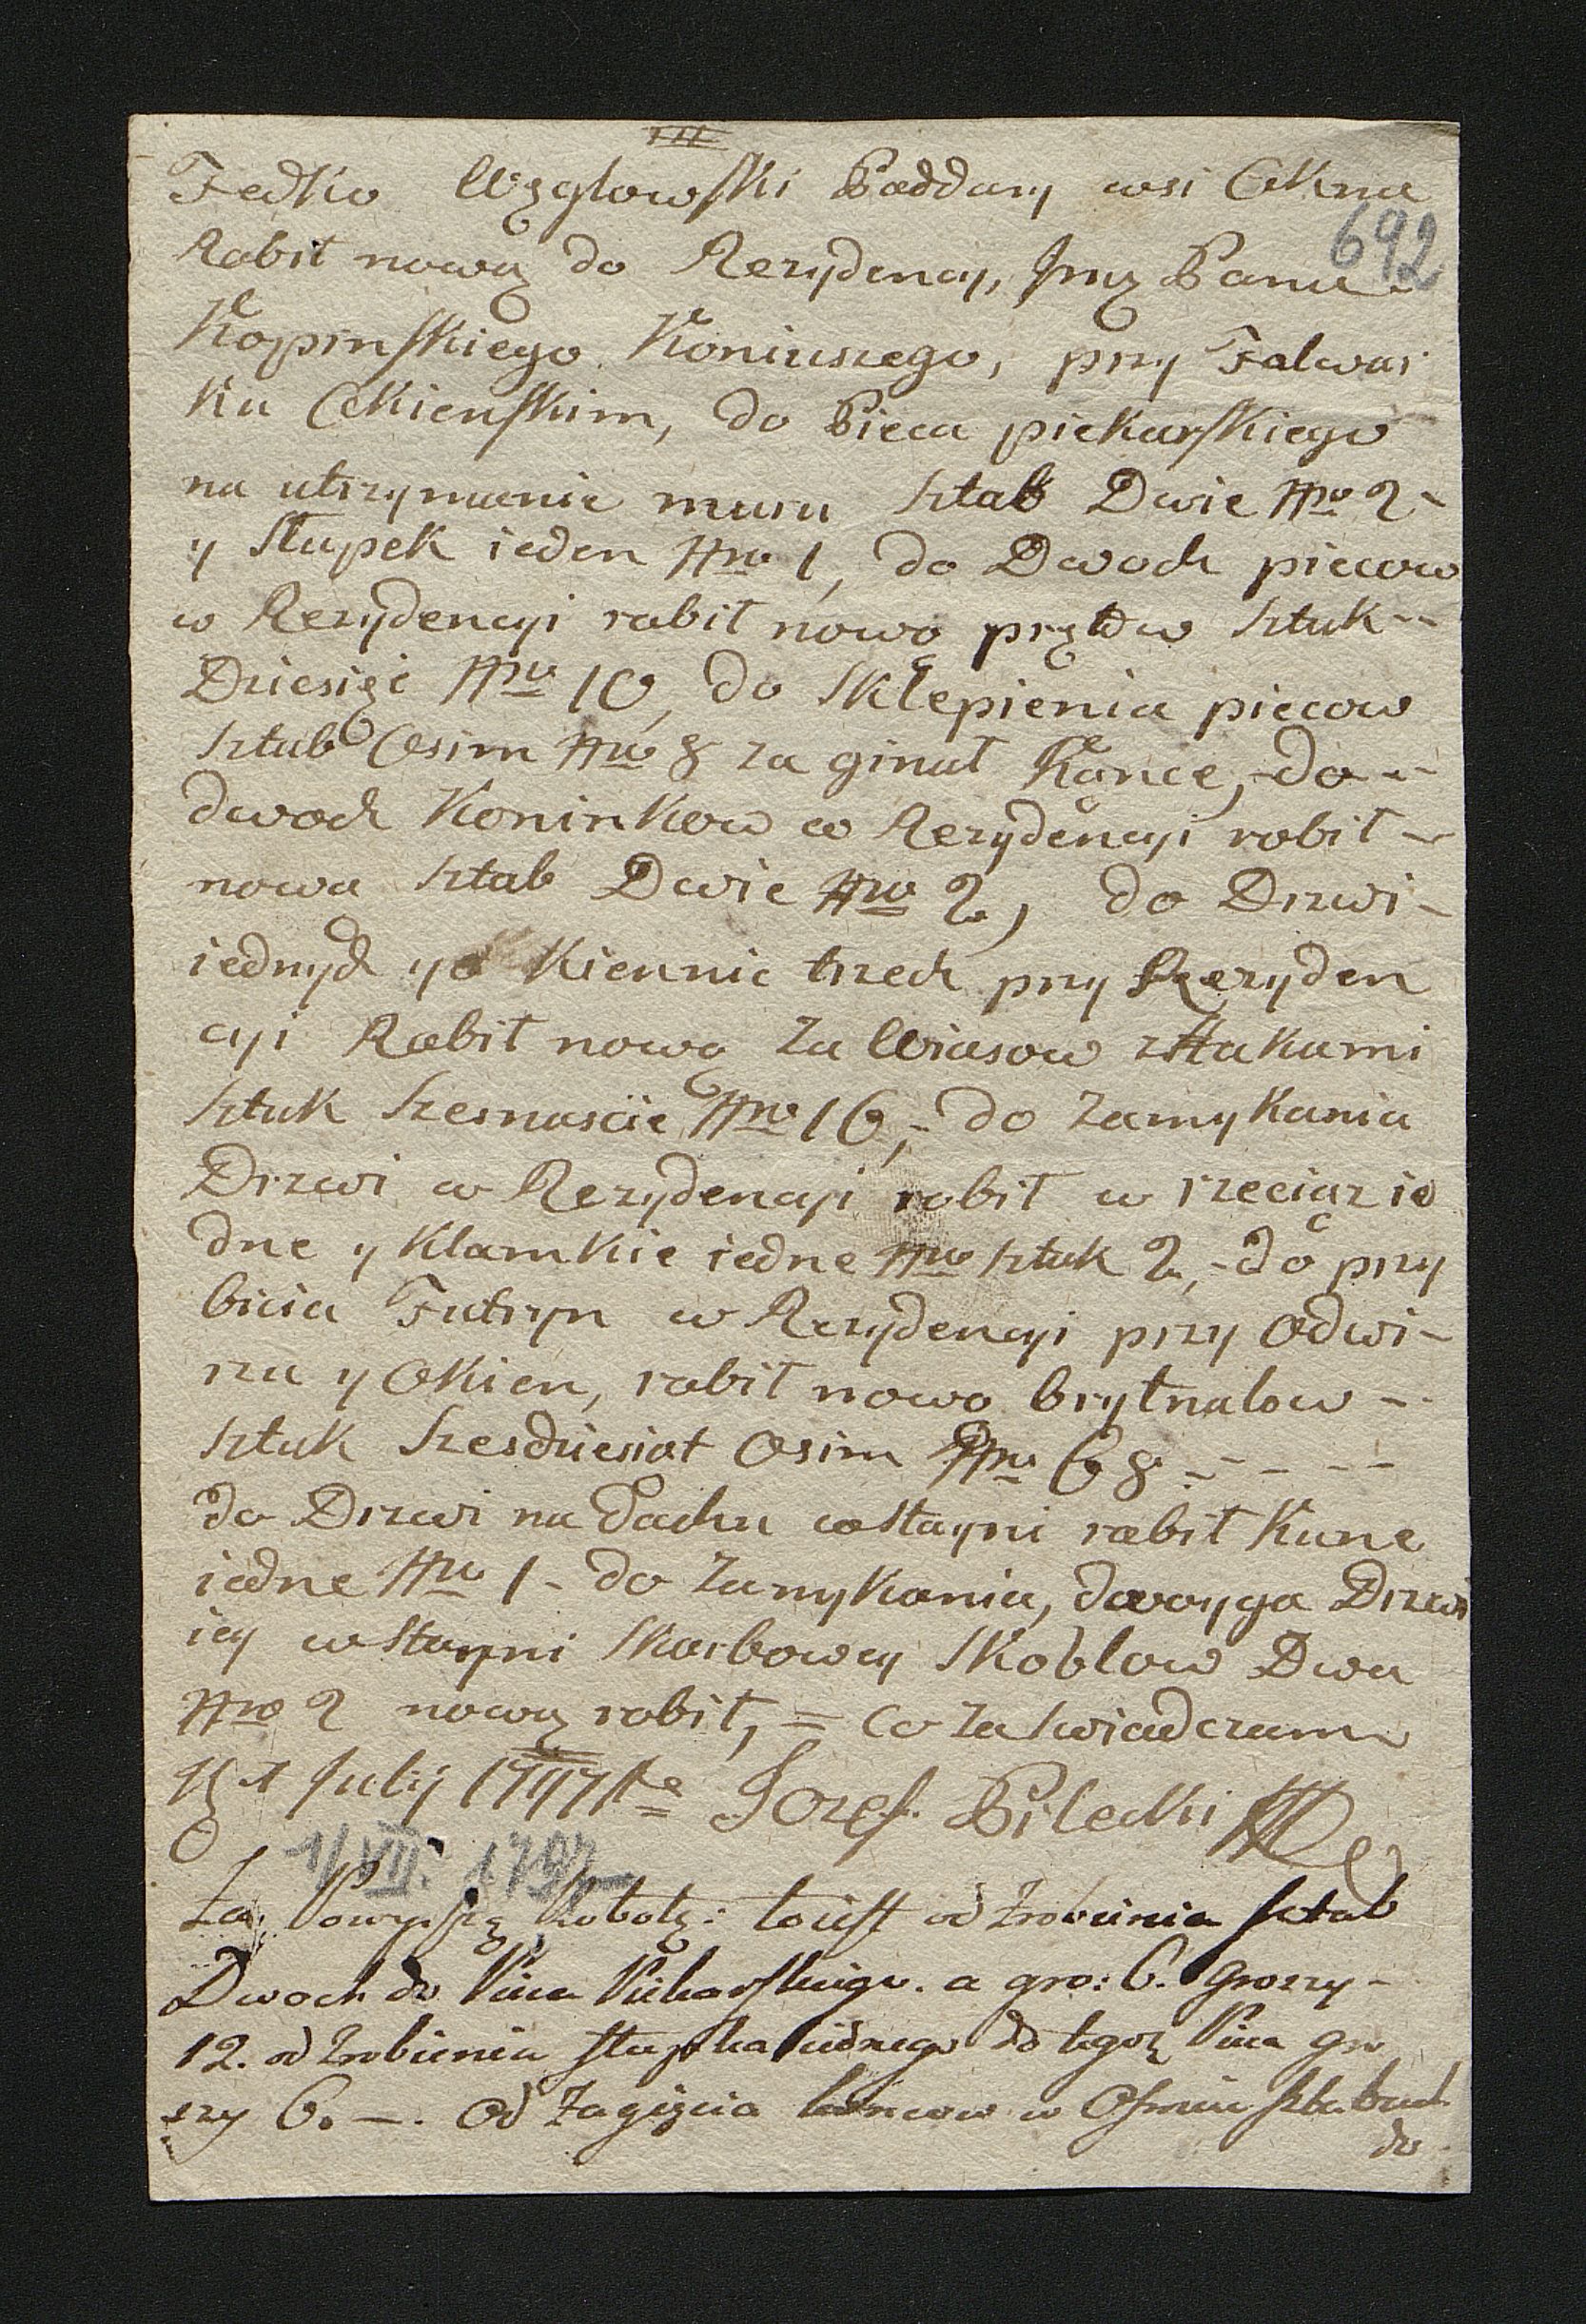 Fedko Węglowski Poddany wsi Okna
692
Robił nową do Rezydency, Jmę Pana
Kopinskiego Koniuszego, przy Falwar
ku Okienskim, do Pieca piekarskiego
na utrzymanie muru sztab Dwie Nro 2 -
y słupek ieden Nro 1, do Dwoch piecow
w Rezydencyi robił nowo prętow sztuk --
Dziesięć Nro 10, do sklepienia piecow
sztab Osim Nro 8 za ginał Końce, do --
dwoch Kominkow w Rezydencyi robił -
nowa sztab Dwie Nro 2, do Drzwi -
iednych y o Kiennic trzech przy Rezyden
cyi Robił nowo za Wiasow z Hakami
sztuk szesnascie Nro 16, - do zamykania
Drzwi w Rezydencyi robił w rzeciąz ie
dne y Klamkie iedne Nro sztuk 2, - do przy
bicia Futryn w Rezydencyi przy Odwi -
rza y Okien, robił nowo brytnalow --
sztuk szesdziesiat Osim Nro 68 - - - - -
do Drzwi na Dachu w stayni robił Kune
iedne Nro 1 - do zamykania, dwoyga Drzwi
icy w stayni Skarbowey Skoblow Dwa
Nro 2 nową robił, = co za swiadczam
1 July 1797 Jozef Bilecki
1/VII. 1797
Za Powyzszą Robotę: to iest od zrobienia sztab
Dwoch do Pieca Piekarskiego. a gro: 6. Groszy -
12. od zrobienia słupka iednego do tegoz Pieca gro
szy 6. -. Od zagięcia koncow w Osmiu sztabach
do